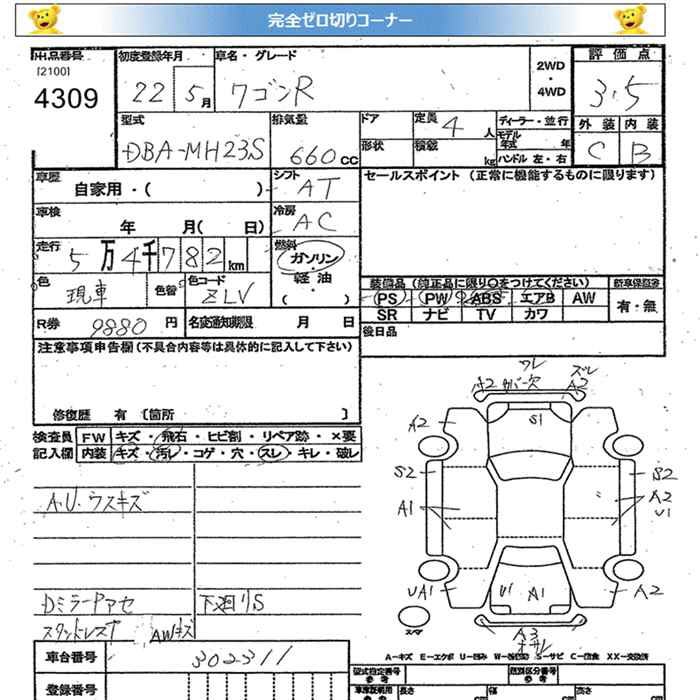 完全ゼロ切りコーナー
出品番号 初度登録年月 車名・グレード 2WD ・ 4WD 評価点
[2100]
4309 22 5月 ワゴンR 3.5
型式 排気量 ドア 定員 4人 ディーラー・並行 外装 内装
DBA-MH23S 660cc 形状 積載 kg モデル年式 年 C B
ハンドル 左・右
車歴 自家用・( ) シフト AT セールスポイント (正常に機能するものに限ります)
車検 年 月( 日) 冷房 AC
走行 5万4千782km 燃料 ガソリン ・ 軽油 ( )
色 現車 色替 色コード ZLV 装備品 (純正品に限り○をつけてください) 新車保証書
PS PW ABS エアB AW 有・無
R券 9880円 名変通知期限 月 日 SR ナビ TV カワ
注意事項申告欄(不具合内容等は具体的に記入して下さい) 後日品
修復歴 有 [箇所 ]
検査員 FW キズ・飛石・ヒビ割・リペア跡・×要
記入欄 内装 キズ・汚レ・コゲ・穴・スレ・キレ・破レ
ワレ ズレ
A2 カバー欠 A2
A2 S1
S2 S2
A1 A2
U1
UA1 U1 A1 A2
スペア A3
A.U.ウスキズ
DミラーPアセ 下廻りS
AWキズ
A-キズ E-エクボ U-凹み S-サビ C-腐食 XX-交換済
車台番号 302311 型式指定番号 類別区分番号
登録番号 長さ cm 幅 cm 高さ cm